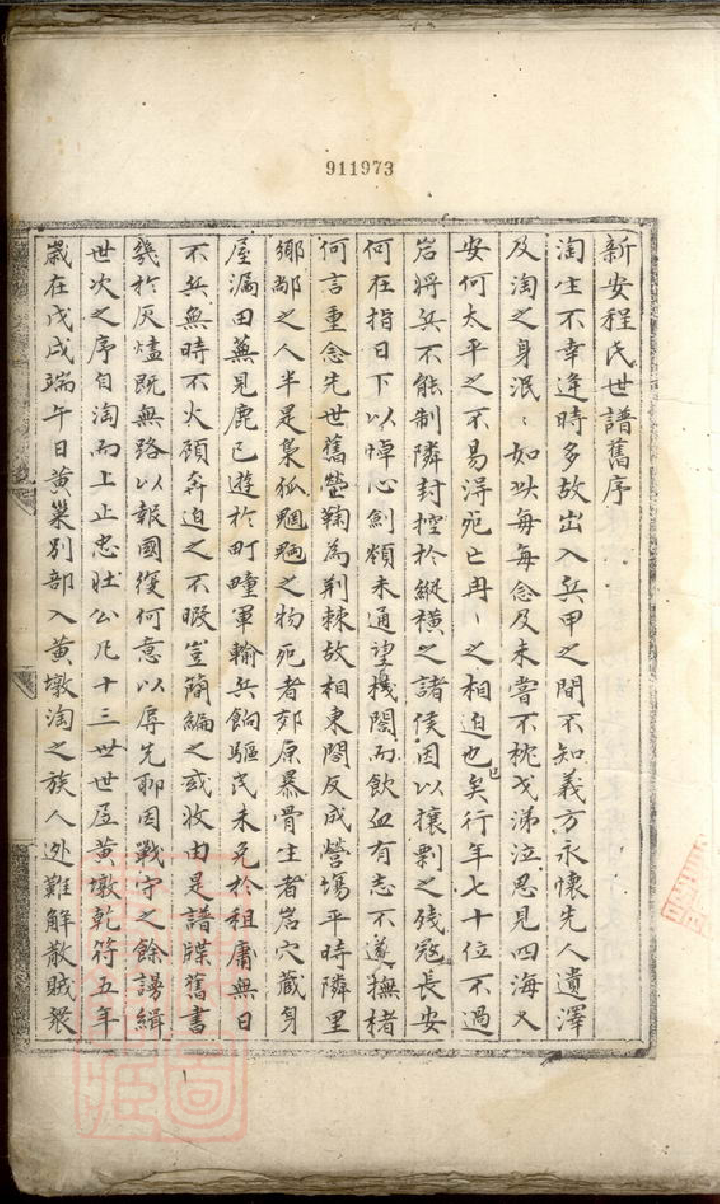 911973
新安程氏世譜舊序
淘生不幸逢時多故出入兵甲之間不知義方永懷先人遺澤
及淘之身泯〻如此每每念及未嘗不枕戈涕泣思見四海大
安何太平之不易得死亡冉〻之相迫也已矣行年七十位不過
岩將兵不能制隣封控於縱橫之諸侯因以攘剽之殘寇長安
何在指日下以悼心劍頟未通望棧閣而飲血有志不遂撫楮
何言重念先世舊塋鞠為荆棘故相東閣反成營塲平時隣里
鄉鄙之人半是梟狐魍魎之物死者郊原暴骨生者岩穴藏身
屋漏田蕪見鹿已遊於町畽軍輸兵餉驅民未免於租庸無日
不兵無時不火頋奔迫之不暇豈簡編之或收由是譜牒舊書
幾於灰燼既無路以報國復何意以辱先聊因戰守之餘謾緝
世次之序自淘而上止忠壯公凡十三世世居黄墩乾符五年
歲在戊戌端午日黄巢别部入黄墩淘之族人逊難解散賊衆